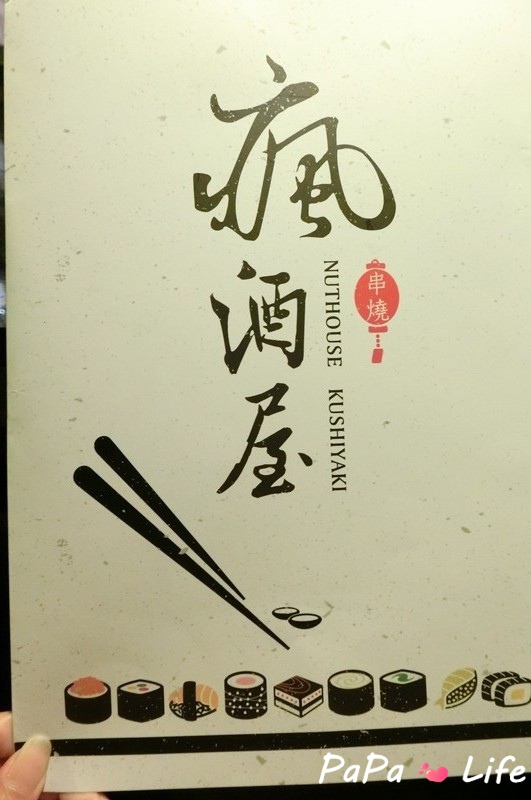 瘋酒屋
NUTHOUSE KUSHIYAKI
串燒
PaPa Life